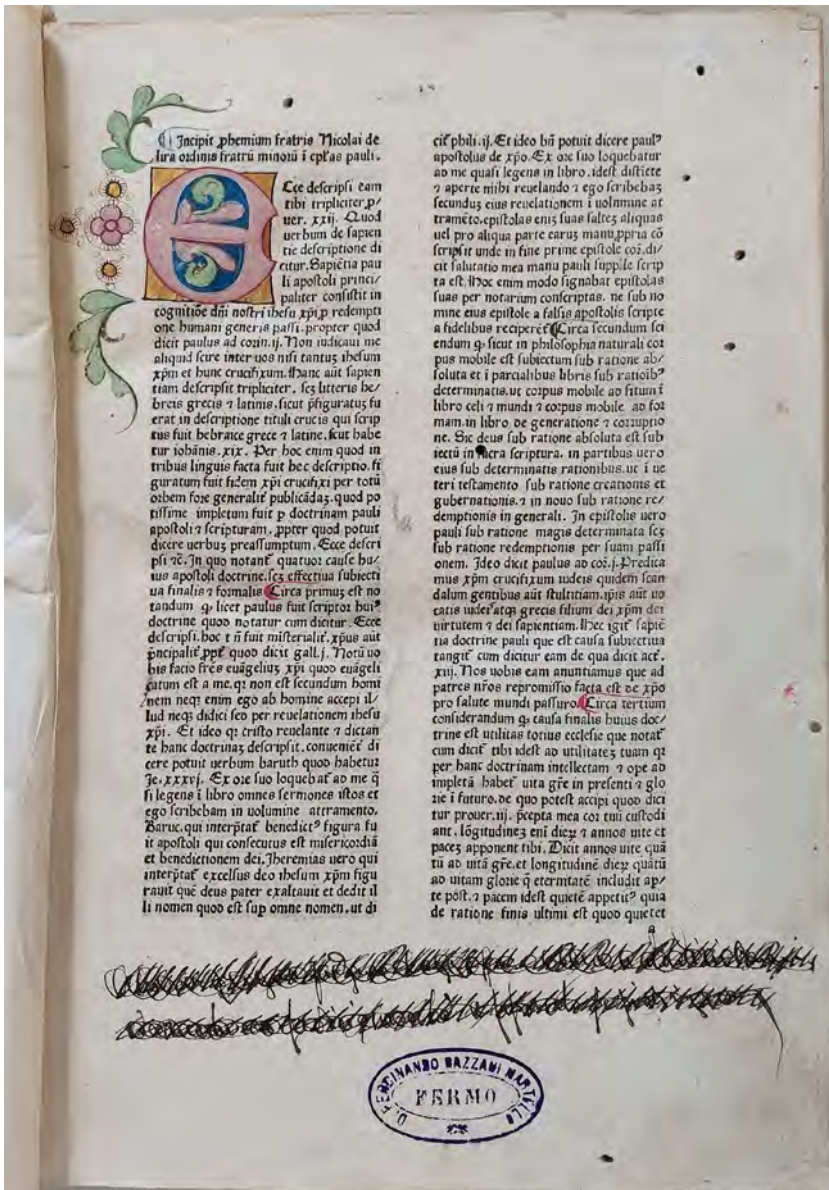 Incipit ꝓhemium fratris Nicolai de
lira ordinis fratrū minorū ī epl'as pauli.
Ecce descripsi eam
tibi tripliciter, p/
uer. xxij. Quod
uerbum de sapien
tie descriptione di
citur. Sapiētia pau
li apostoli princi/
paliter consistit in
cognitiōe dn̄i nostri ihesu xp̄i, p redempti
one humani generis passi. propter quod
dicit paulus ad corin. ij. Non iudicaui me
aliquid scire inter uos nisi tantuꝫ ihesum
xp̄m et hunc crucifixum. Hanc aūt sapien
tiam descripsit tripliciter. scꝫ litteris he/
breis grecis ⁊ latinis. sicut p̄figuratuꝫ fu
erat in descriptione tituli crucis qui scrip
tus fuit hebraice grece ⁊ latine. sicut habe
tur iohānis. xix. Per hoc enim quod in
tribus linguis facta fuit hec descriptio. fi
guratum fuit fidem xp̄i crucifixi per totū
orbem fore generalit̄ publicādaꝫ. quod po
tissime impletum fuit p doctrinam pauli
apostoli ⁊ scripturam. ꝓpter quod potuit
dicere uerbuꝫ preassumptum. Ecce descri
psi ⁊c̄. In quo notant᷑ quatuor cause hu/
ius apostoli doctrine. scꝫ effectiua subiecti
ua finalis ⁊ formalis Circa primuꝫ est no
tandum ꝙ licet paulus fuit scriptor huiꝰ
doctrine quod notatur cum dicitur. Ecce
descripsi. hoc t n̄ fuit misterialit̄. xp̄us aūt
p̄ncipalit̄ ꝓpt̄ quod dicit gall. j. Notū uo
bis facio fr̄es euāgeliuꝫ xp̄i quod euāgeli
ȥatum est a me. qꝛ non est secundum homi
nem neqꝫ enim ego ab homine accepi il/
lud neqꝫ didici sed per reuelationem ihesu
xp̄i. Et ideo qꝛ cristo reuelante ⁊ dictan
te hanc doctrinaꝫ descripsit. conueniēt̄ di
cere potuit uerbum baruth quod habetur
Je. xxxvj. Ex ore suo loquebat᷑ ad me q̄
si legens ī libro omnes sermones istos et
ego scribebam in uolumine attramento.
Baruc. qui interp̄tat᷑ benedictꝰ figura fu
it apostoli qui consecutus est misericordiā
et benedictionem dei. Jheremias uero qui
interp̄tat᷑ excelsus deo ihesum xp̄m figu
rauit quē deus pater exaltauit et dedit il
li nomen quod est sup omne nomen. ut di
cit᷑ phili. ij. Et ideo bn̄ potuit dicere paulꝰ
apostolus de xp̄o. Ex ore suo loquebatur
ad me quasi legens in libro. idest disticte
⁊ aperte mihi reuelando ⁊ ego scribebaꝫ
secunduꝫ eius reuelationem ī uolumine at
tramēto. epistolas eniꝫ suas salteꝫ aliquas
uel pro aliqua parte earuꝫ manu ꝓpria cō
scripsit unde in fine prime epistole cor. di/
cit salutatio mea manu pauli supple scrip
ta est. Hoc enim modo signabat epistolas
suas per notarium conscriptas. ne sub no
mine eius epistole a falsis apostolis scripte
a fidelibus reciperēt᷑ Circa secundum sci
endum ꝙ sicut in philosophia naturali cor
pus mobile est subiectum sub ratione ab/
soluta et ī parcialibus libris sub ratioībꝰ
determinatis. ut corpus mobile ad situm ī
libro celi ⁊ mundi ⁊ corpus mobile ad for
mam. in libro de generatione ⁊ corruptio
ne. Sic deus sub ratione absoluta est sub
iectū in sacra scriptura. in partibus uero
eius sub determinatis rationibus. ut ī ue
teri testamento sub ratione creationis et
gubernationis. ⁊ in nouo sub ratione re/
demptionis in generali. In epistolis uero
pauli sub ratione magis determinata scꝫ
sub ratione redemptionis per suam passi
onem. Ideo dicit paulus ad cor. j. Predica
mus xp̄m crucifixum iudeis quidem scan
dalum gentibus aūt stultitiam. ip̄is aūt uo
catis iudeis atqꝫ grecis filium dei xp̄m dei
uirtutem ⁊ dei sapientiam. Hec igit᷑ sapiē
tia doctrine pauli que est causa subiectiua
tangit᷑ cum dicitur eam de qua dicit act̄.
xiij. Nos uobis eam anuntiamus que ad
patres nr̄os repromissio facta est de xp̄o
pro salute mundi passuro. Circa tertium
considerandum ꝙ causa finalis huius doc/
trine est utilitas totius ecclesie que notat᷑
cum dicit᷑ tibi idest ad utilitateꝫ tuam qꝛ
per hanc doctrinam intellectam ⁊ ope ad
impletā habet᷑ uita gr̄e in presenti ⁊ glo
rie ī futuro. de quo potest accipi quod dici
tur prouer. iij. p̄cepta mea cor tuū custodi
ant. lōgitudineꝫ enī dieꝝ ⁊ annos uite et
paceꝫ apponent tibi. Dicit annos uite quā
tū ad uitā gr̄e. et longitudinē dieꝝ quātū
ad uitam glorie q̄ eternitatē includit ap/
te post. ⁊ pacem idest quietē appetitꝰ quia
de ratione finis ultimi est quod quietet
D. FERDINANDO BAZZANI MARTELLO
FERMO